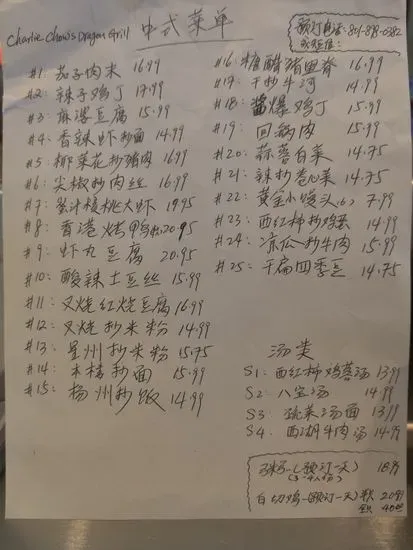 Charlie Chow's Dragon Grill
中式菜单
预订电话: 801-898-0382
或短信:
#1: 茄子肉末 16.99
#2: 辣子鸡丁 17.99
#3: 麻婆豆腐 15.99
#4: 香辣虾炒面 14.99
#5: 椰菜花炒猪肉 16.99
#6: 尖椒炒肉丝 16.99
#7: 蜜汁核桃大虾 19.95
#8: 香港烤鸭 20.95
#9: 虾丸豆腐 20.95
#10: 酸辣土豆丝 15.99
#11: 叉烧红烧豆腐 16.99
#12: 叉烧炒米粉 14.99
#13: 星州炒米粉 15.75
#14: 木樨炒面 15.99
#15: 杨州炒饭 14.99
#16: 糖醋猪里脊 16.99
#17: 干炒牛河 14.99
#18: 酱爆鸡丁 15.99
#19: 回锅肉 15.99
#20: 蒜蓉白菜 14.75
#21: 辣炒卷心菜 14.75
#22: 黄金小馒头(6) 7.99
#23: 西红柿炒鸡蛋 14.99
#24: 凉瓜炒牛肉 15.99
#25: 干扁四季豆 14.75
汤类
S1: 西红柿鸡蛋汤 13.99
S2: 八宝汤 14.99
S3 蔬菜汤面 13.99
S4. 西湖牛肉汤 14.99
(预订一天) 18.95
白切鸡-(预订一天)